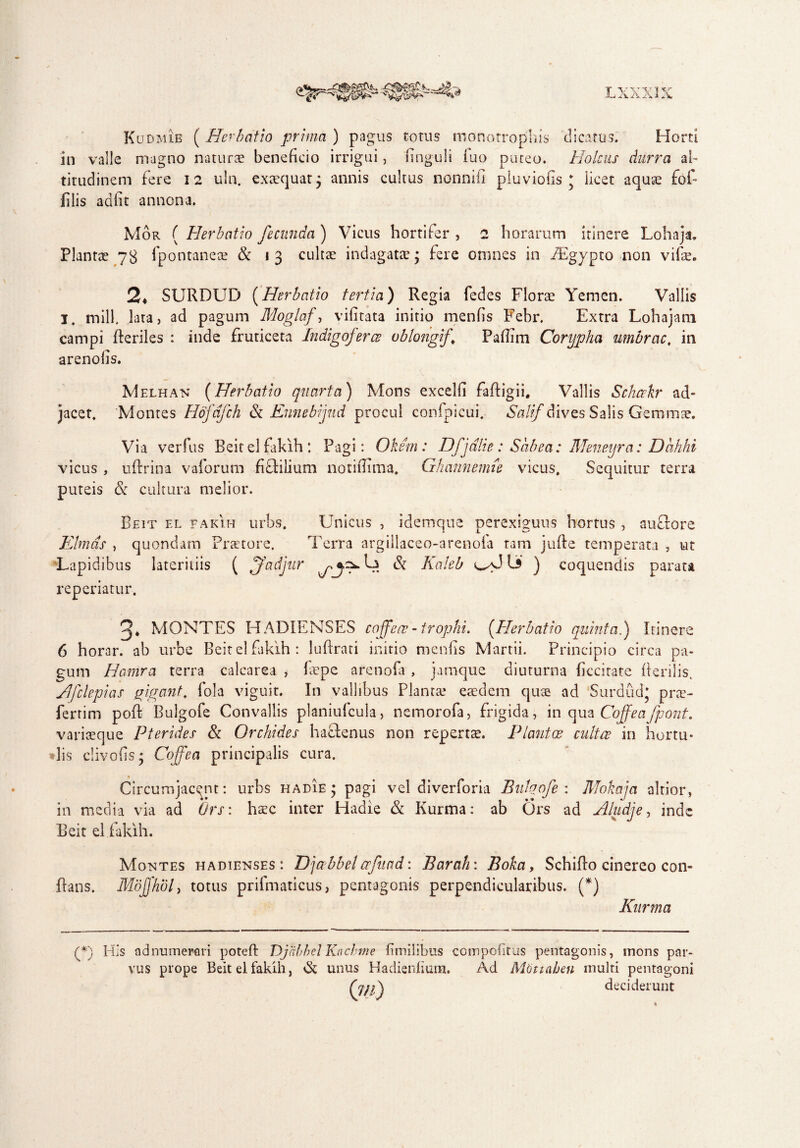 LXXXIX
KUDMIE ( Herbatio prima ) pagus totus monotrophis dicatus. Horti
in valle magno naturæ beneficio irrigui, ſinguli ſuo puteo. Holcus durra al-
titudinem fere 12 uln. exæquat; annis cultus nonniſi pluviofis; licet aquæ foſ-
ſilis adſit annona.
MÔR ( Herbatio ſecunda ) Vicus hortifer, 2 horarum itinere Lohaja.
Plantæ 78 ſpontaneæ & 13 cultæ indagatæ; fere omnes in Ægypto non viſæ.
2. SURDUD (Herbatio tertia) Regia ſedes Floræ Yemen. Vallis
1. mill. lata, ad pagum Moglaf, viſitata initio menſis Febr. Extra Lohajam
campi ſteriles : inde fruticeta Indigoferæ oblongif. Paſſim Corypha umbrac. in
arenoſis.
MELHAN (Herbatio quarta) Mons excelſi faſtigii. Vallis Schækr ad-
jacet. Montes Höfâſch & Ennebîjud procul conſpicui. Salif dives Salis Gemmæ.
Via verſus Beit el fakìh: Pagi: Okêm: Dſjâlie: Sàbea: Meneyra: Dàhhi
vicus, uſtrina vaſorum fictilium notiſſima. Ghannemîe vicus. Sequitur terra
puteis & cultura melior.
BEIT EL FAKÌH urbs. Unicus, idemque perexiguus hortus, auctore
Elmâs, quondam Prætore. Terra argillaceo-arenoſa tam juſte temperata, ut
Lapidibus lateritiis ( Jadjur ياجور & Kaleb قالب ) coquendis parata
reperiatur.
3. MONTES HADIENSES coffeæ-trophi. (Herbatio quinta.) Itinere
6 horar. ab urbe Beit el fakìh: luſtrati initio menſis Martii. Principio circa pa-
gum Hamra terra calcarea, ſæpe arenoſa, jamque diuturna ſiccitate ſterilis.
Aſclepias gigant. ſola viguit. In vallibus Plantæ eædem quæ ad Surdûd; præ-
ſertim poſt Bulgoſe Convallis planiuſcula, nemoroſa, frigida, in qua Coffea ſpont.
variæque Pterides & Orchides hactenus non repertæ. Plantæ cultæ in hortu-
lis clivoſis; Coffea principalis cura.
Circumjacent: urbs HADÎE; pagi vel diverſoria Bulgoſe : Mokaja altior,
in media via ad Ürs: hæc inter Hadîe & Kurma: ab Örs ad Aludje, inde
Beit el fakìh.
MONTES HADIENSES: Djæbbel æſuad: Barah: Boka, Schiſto cinereo con-
ſtans. Möſſhöl, totus priſmaticus, pentagonis perpendicularibus. (*)
Kurma
(*) His adnumerari poteſt Djàbbel Kachme ſimilibus compoſitus pentagonis, mons par-
vus prope Beit el fakìh, & unus Hadienſium. Ad Möttaben multi pentagoni
(m) deciderunt